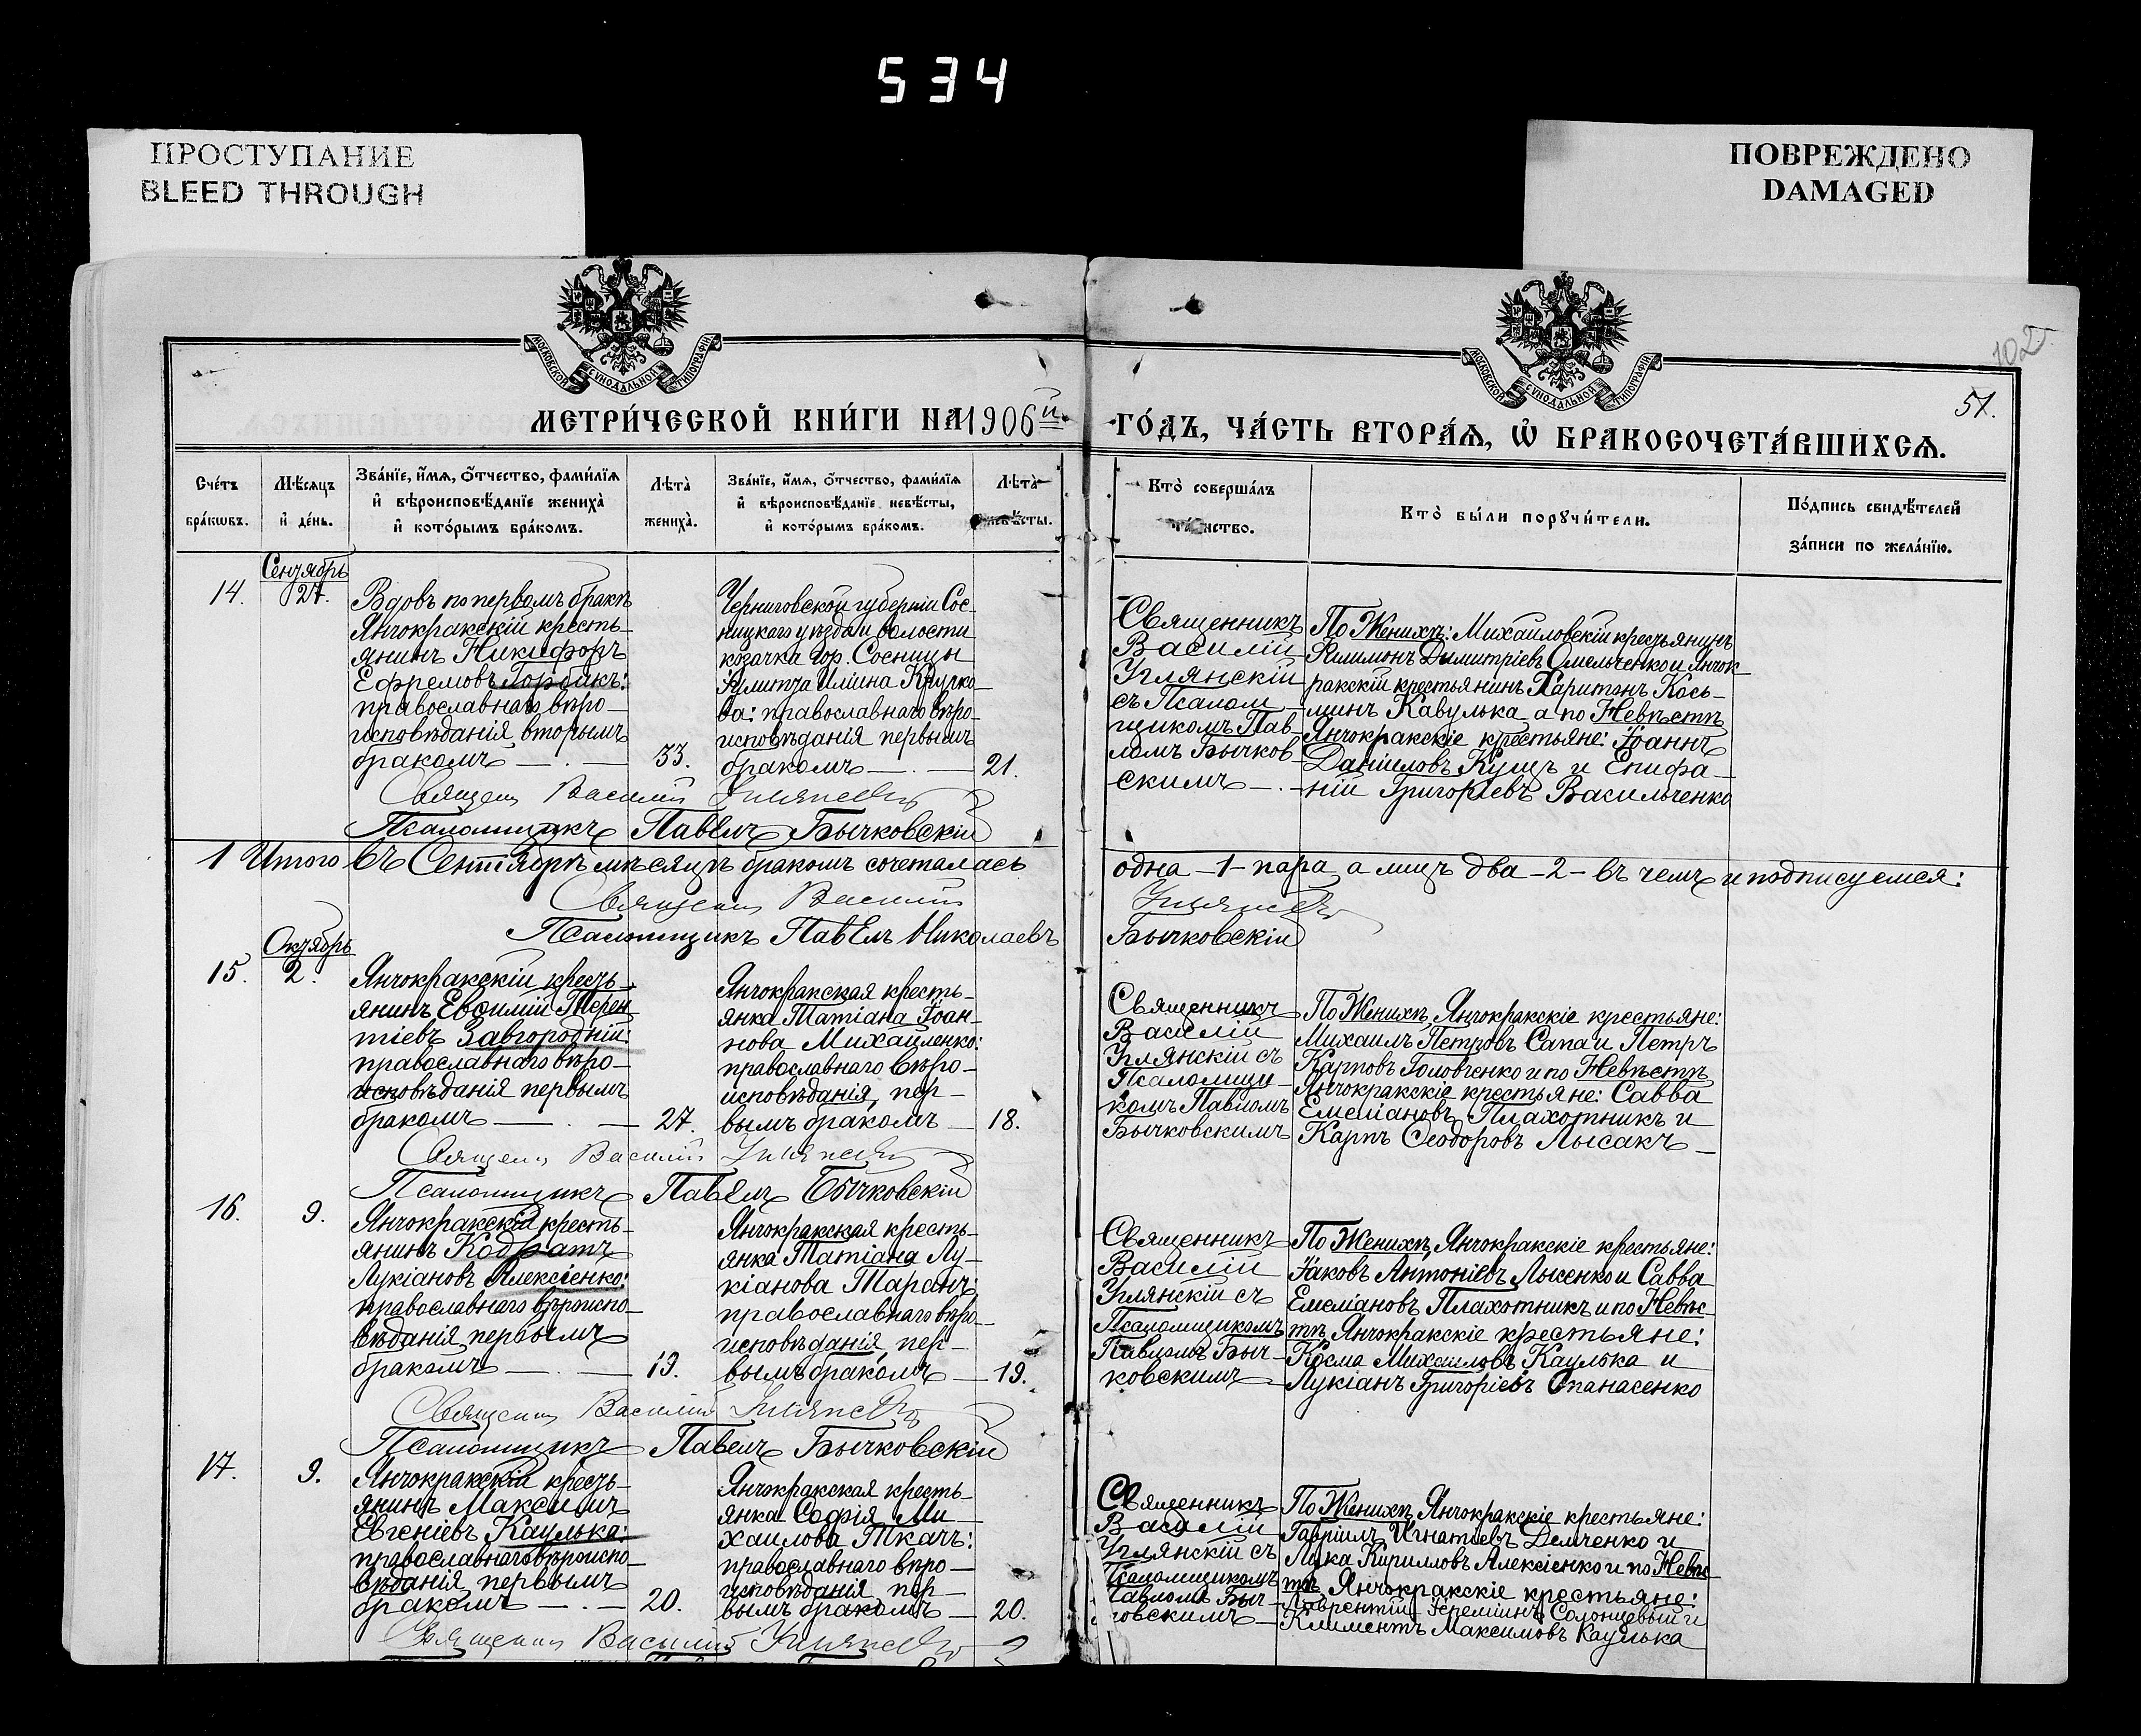 534
ПРОСТУПАНИЕ
BLEED THROUGH
ПОВРЕЖДЕНО
DAMAGED
МОСКОВСКОЙ СѴНОДАЛЬНОЙ ТИПОГРАФІИ
МОСКОВСКОЙ СѴНОДАЛЬНОЙ ТИПОГРАФІИ
102
51.
МЕТРИ́ЧЕСКОЙ КНИ́ГИ НА 1906й
ГО́ДЪ, ЧА́СТЬ ВТОРА́Ѧ, Ѡ҆ БРАКОСОЧЕТА́ВШИХСѦ.
Сче́тъ
бра́кѡвъ.
Мѣ́сяцъ
и҆ де́нь.
Зва́нїе, и҆́мѧ, ѻ҆́тчество, фами́лїѧ
и҆ вѣроисповѣ́данїе жениха̀
и҆ кото́рымъ бра́комъ.
Лѣта̀
жениха̀.
Зва́нїе, и҆́мѧ, ѻ҆́тчество, фами́лїѧ
и҆ вѣроисповѣ́данїе невѣ́сты,
и҆ кото́рымъ бра́комъ.
Лѣта̀
невѣ́сты.
Кто̀ соверша́лъ
та́инство.
Кто̀ бы́ли порꙋчи́тели.
По́дпись свидѣ́телей
за́писи по жела́нїю.
14.
Сентябрь
27.
Вдовъ по первомъ бракѣ
Янчокракскій кресть-
янинъ Никифоръ
Ефремовъ Горбакъ:
православнаго вѣро-
исповѣданія вторымъ
бракомъ — . —
33.
Черниговской губерніи Сос-
ницкаго уѣзда и волости
козачка гор. Сосницы
Иліина Крурко-
ва: православнаго вѣро-
исповѣданія первымъ
бракомъ — . —
21.
Священникъ
Василій
Углянскій
съ Псалом-
щикомъ Пав-
ломъ Бычков-
скимъ — . —
По Женихѣ: Михайловскій крестьянинъ
Филимонъ Димитріевъ Омельченко и Янчок-
ракскій крестьянинъ Харитонъ Кось-
минъ Кавулька а по Невѣстѣ
Янчокракскіе крестьяне: Іоаннъ
Даніиловъ Кущъ и Епифа-
ній Григоріевъ Васильченко
Священ. Василій Углянскій
Псаломщикъ Павелъ Бычковскій
1 Итого въ Сентябрѣ мѣсяцѣ бракомъ сочеталась одна -1- пара, а лицъ два -2- въ чемъ и подписуемся:
Священ. Василій Углянскій
Псаломщикъ Павелъ Николаевъ Бычковскій
15.
Октябрь
2.
Янчокракскій кресть-
янинъ Евѳимій Терен-
тіевъ Завгородній:
православнаго вѣро-
исповѣданія первымъ
бракомъ — . —
27.
Янчокракская кресть-
янка Татіана Іоан-
нова Михайленко:
православнаго вѣро-
исповѣданія, пер-
вымъ бракомъ —
18.
Священникъ
Василій
Углянскій съ
Псаломщи-
комъ Павломъ
Бычковскимъ
По Женихѣ, Янчокракскіе крестьяне:
Михаилъ Петровъ Сапа и Петръ
Карповъ Головченко и по Невѣстѣ
Янчокракскіе крестьяне: Савва
Емеліановъ Плахотникъ и
Карпъ Ѳеодоровъ Лысакъ —
Священ. Василій Углянскій
Псаломщикъ Павелъ Бычковскій
16.
9.
Янчокракскій кресть-
янинъ Кодратъ
Лукіановъ Алексіенко:
православнаго вѣроиспо-
вѣданія первымъ
бракомъ — . —
19.
Янчокракская кресть-
янка Татіана Лу-
кіанова Таранъ:
православнаго вѣро-
исповѣданія, пер-
вымъ бракомъ —
19.
Священникъ
Василій
Углянскій съ
Псаломщикомъ
Павломъ Быч-
ковскимъ —
По Женихѣ, Янчокракскіе крестьяне:
Іаковъ Антоніевъ Лысенко и Савва
Емеліановъ Плахотникъ и по Невѣс-
тѣ Янчокракскіе крестьяне:
Косма Михаиловъ Каулька и
Лукіанъ Григоріевъ Опанасенко
Священ. Василій Углянскій
Псаломщикъ Павелъ Бычковскій
17.
9.
Янчокракскій кресть-
янинъ Максимъ
Евгеніевъ Каулька:
православнаго вѣроиспо-
вѣданія первымъ
бракомъ — . —
20.
Янчокракская кресть-
янка Софія Ми-
хаилова Ткачъ:
православнаго вѣро-
исповѣданія, пер-
вымъ бракомъ —
20.
Священникъ
Василій
Углянскій съ
Псаломщикомъ
Павломъ Быч-
ковскимъ —
По Женихѣ Янчокракскіе крестьяне:
Гавріилъ Игнатіевъ Демченко и
Лука Кирилловъ Алексіенко и по Невѣс-
тѣ Янчокракскіе крестьяне:
Лаврентій Іереміинъ Солонцевый и
Климентъ Максимовъ Каулька
Священ. Василій Углянскій